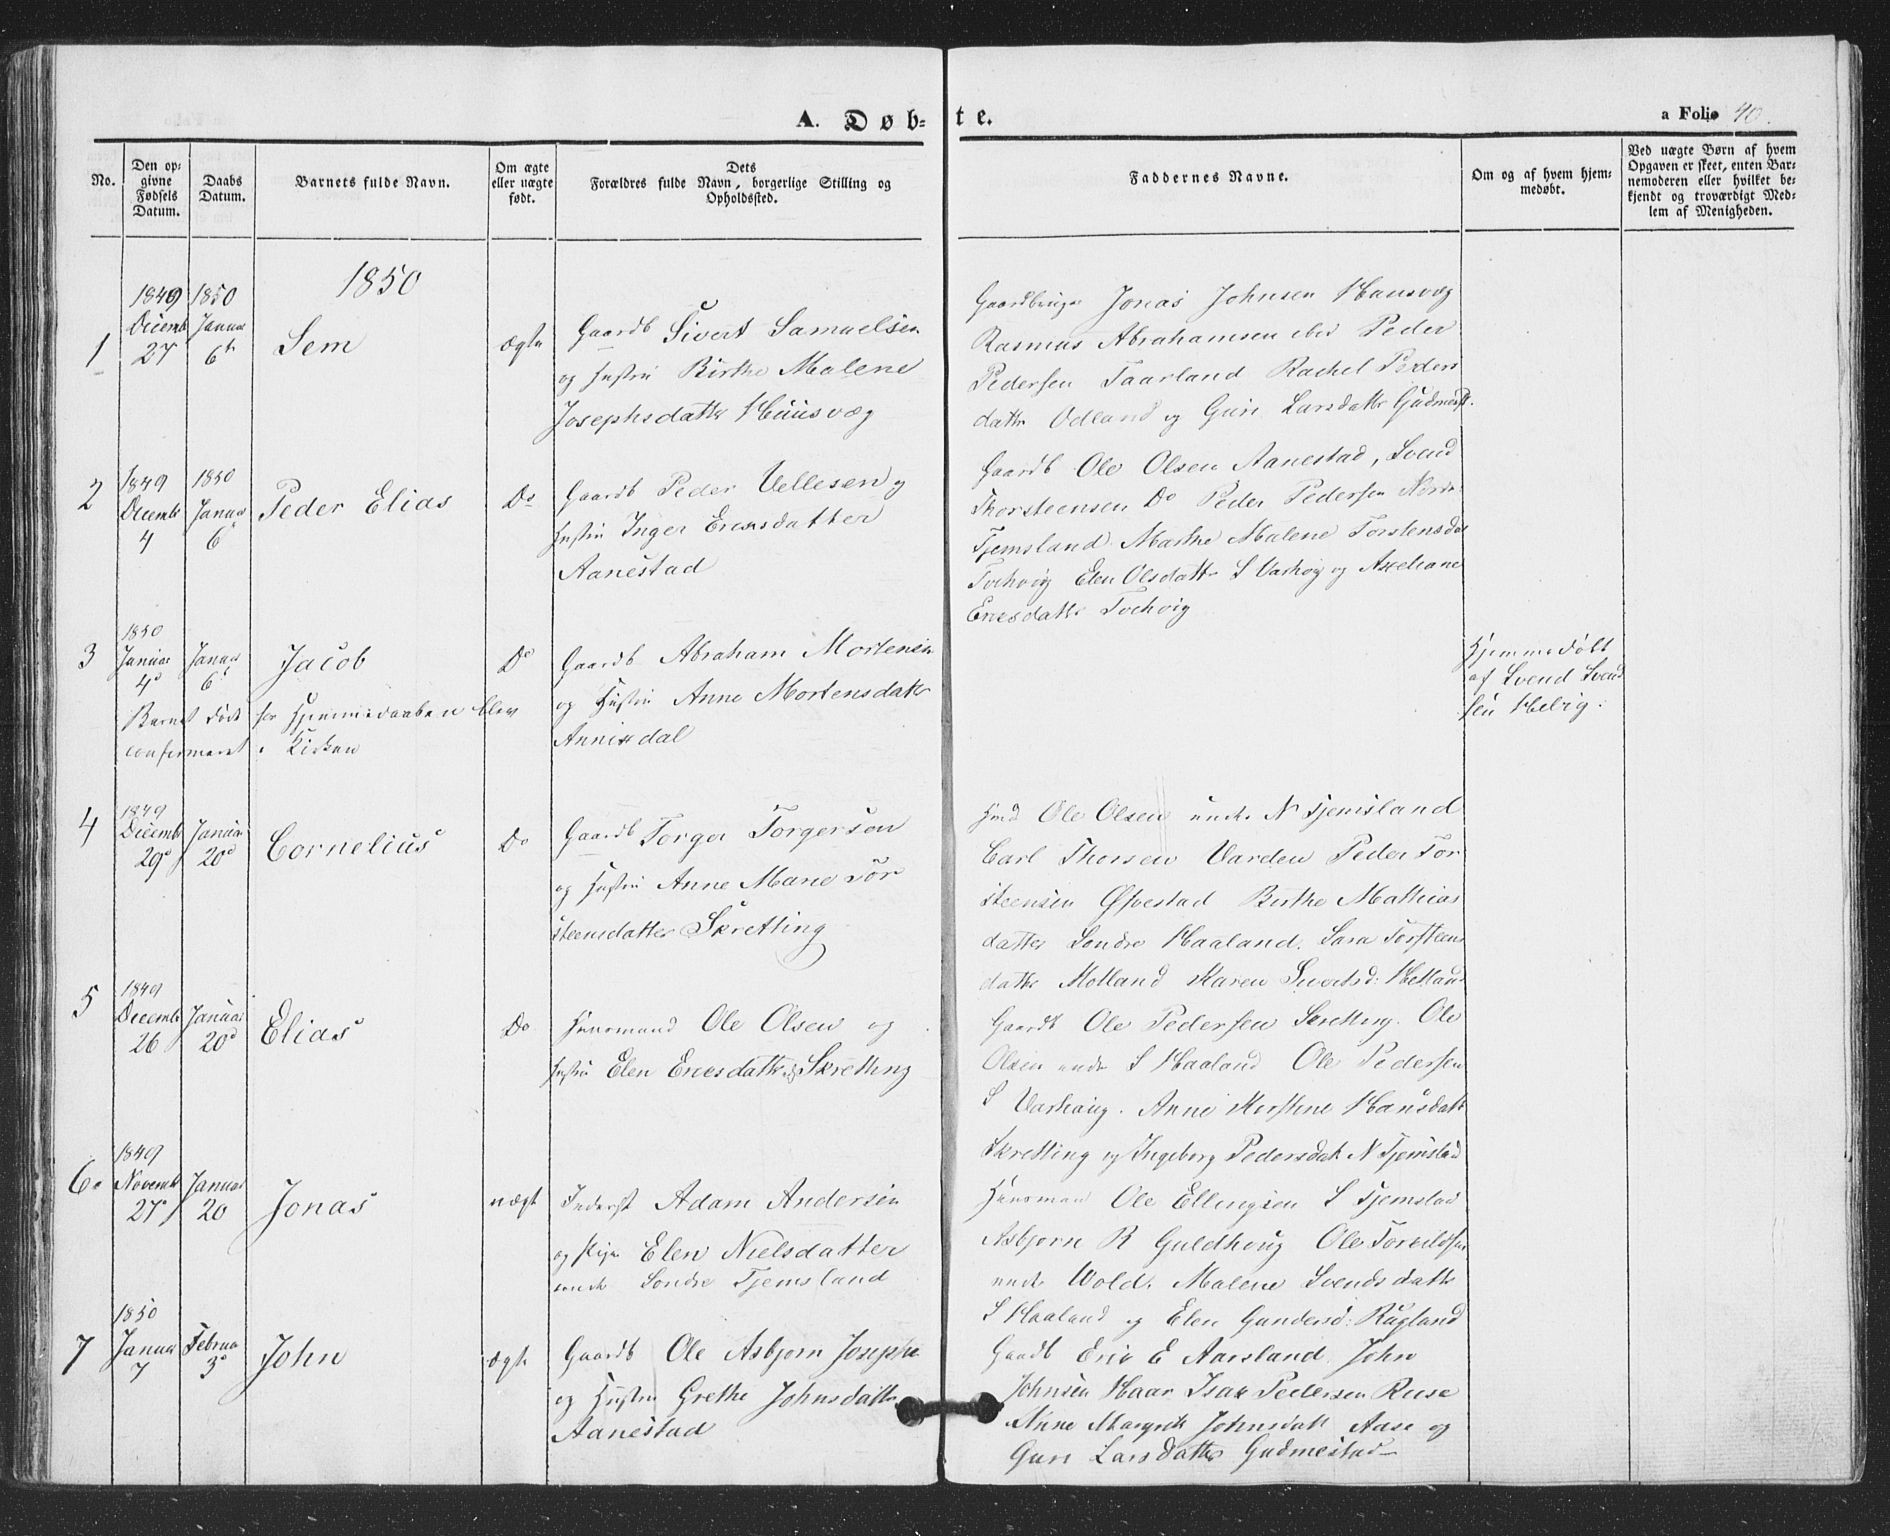 A. Døb=
te.
a Folio 40.
No.
Den op=
givne
Fødsels
Datum.
Daabs
Datum.
Barnets fulde Navn.
Om ægte
eller uægte
født.
Dets
Forældres fulde Navn, borgerlige Stilling og
Opholdssted.
Faddernes Navne.
Om og af hvem hjem=
medøbt.
Ved uægte Børn af hvem
Opgaven er skeet, enten Bar=
nemoderen eller hvilket be=
kjendt og troværdigt Med=
lem af Menigheden.
1850
1
1849
Decemb
27
1850
Januar
6
Sem
ægte
Gaardb Sivert Samuelsen
og Hustru Birthe Malene
Josephsdatter Huusvæg
Gaardbruger Jonas Johnsen Hausvæg
Rasmus Abrahamsen Peder
Pedersen Taarland Rachel Peders
datter Odland og Guri Larsdatter
2
1849
Decemb
4
1850
Januar
6
Peder Elias
Do
Gaardb Peder Vellesen og
Hustru Inger Enersdatter
Aanestad
Gaardb Ole Olsen Aanestad, Svend
Thorsteensen Do Peder Pedersen Nordr
Tjemsland Marthe Malene Torstensda
Elen Olsdatter S Varhoug og
3
1850
Januar
4
Januar
6
Jacob
Do
Gaardb Abraham Mortensen
og Hustru Anne Mortensdatter
Annisdal
Barnet født før Hjemmedaaben blev
confirmeret i Kirken
Hjemmedøbt
af Svend Svend
sen Helvig.
4
1849
Decemb
29
Januar
20
Cornelius
Do
Gaardb Torger Torgersen
og Hustru Anne Marie Tor
steensdatter Skretting
Ole Olsen under N Tjemsland
Carl Thorsen Varden Peder Tor
steensen Øvestad Birthe Mathias
datter Søndre Haaland. Sara Torsteens
datter Molland Karen Sivertsd: Hetland
5
1849
Decemb
26
Januar
20
Elias
Do
Huusmand Ole Olsen og
Hustru Elen Enersdatter Skretting
Gaardb Ole Pedersen Skretting. Ole
Olsen under S Haaland Ole Pedersen
S Varhoug. Anne Kirstine Hansdatt
Skretting og Ingeborg Pedersdat N Tjemsland
6
1849
Novemb
27
Januar
20
Jonas
uægt
Inderst Adam Andersen
og Pige Elen Nielsdatter
under Søndre Tjemsland
Huusman Ole Ellingsen S Tjemsland
Asbjørn R Guldhoug Ole
under Wold. Malene Svendsdatter
S Haaland og Elen Gundersd:
7
1850
Januar
7
Februar
3
John
ægte
Gaardb Ole Asbjørn Joseph
og Hustru Grethe Johnsdatter
Aanestad
Gaardb Eric E Aarsland. John
Johnsen Haar Isak Pedersen Ruse
Anne Margrete Johnsdatt Aase og
Guri Larsdatter Gudmestad